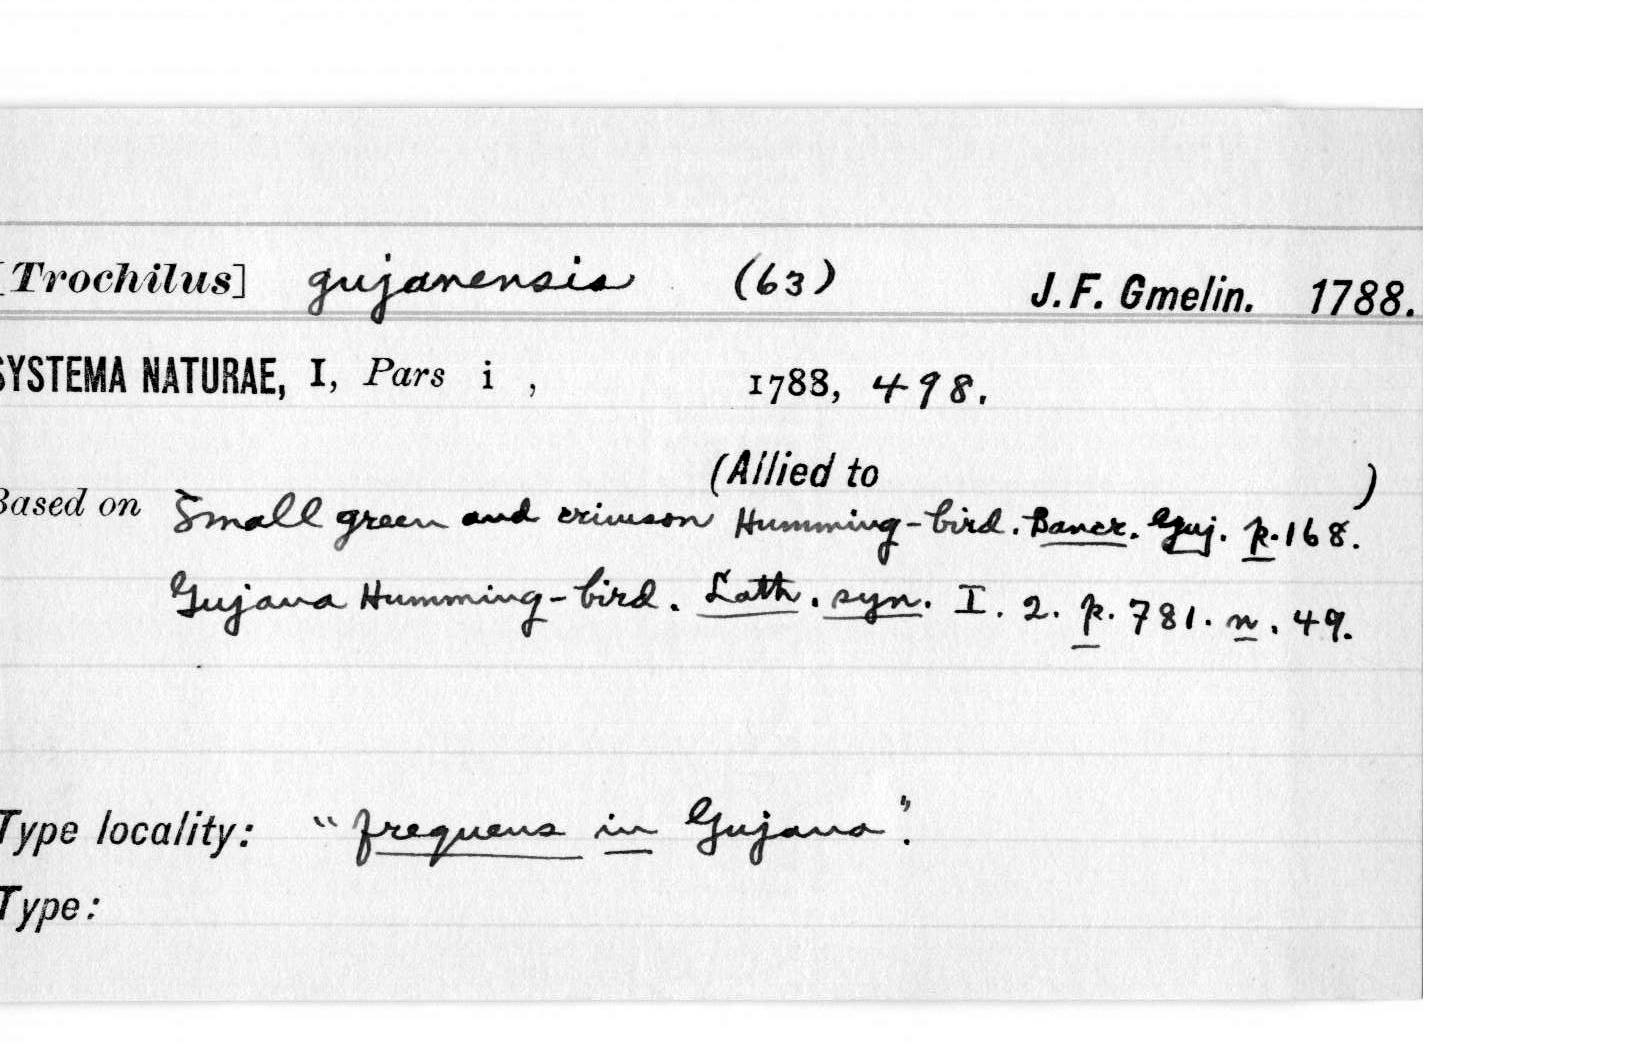 [Trochilus] gujanensis (63) J. F. Gmelin. 1788.
SYSTEMA NATURAE, I, Pars i , 1788, 498.
(Allied to )
Based on Small green and crimson Humming-bird. Bancr. Guj. p. 168.
Gujana Humming-bird. Lath. syn. I. 2. p. 781. n. 49.
Type locality: "frequens in Gujana".
Type: